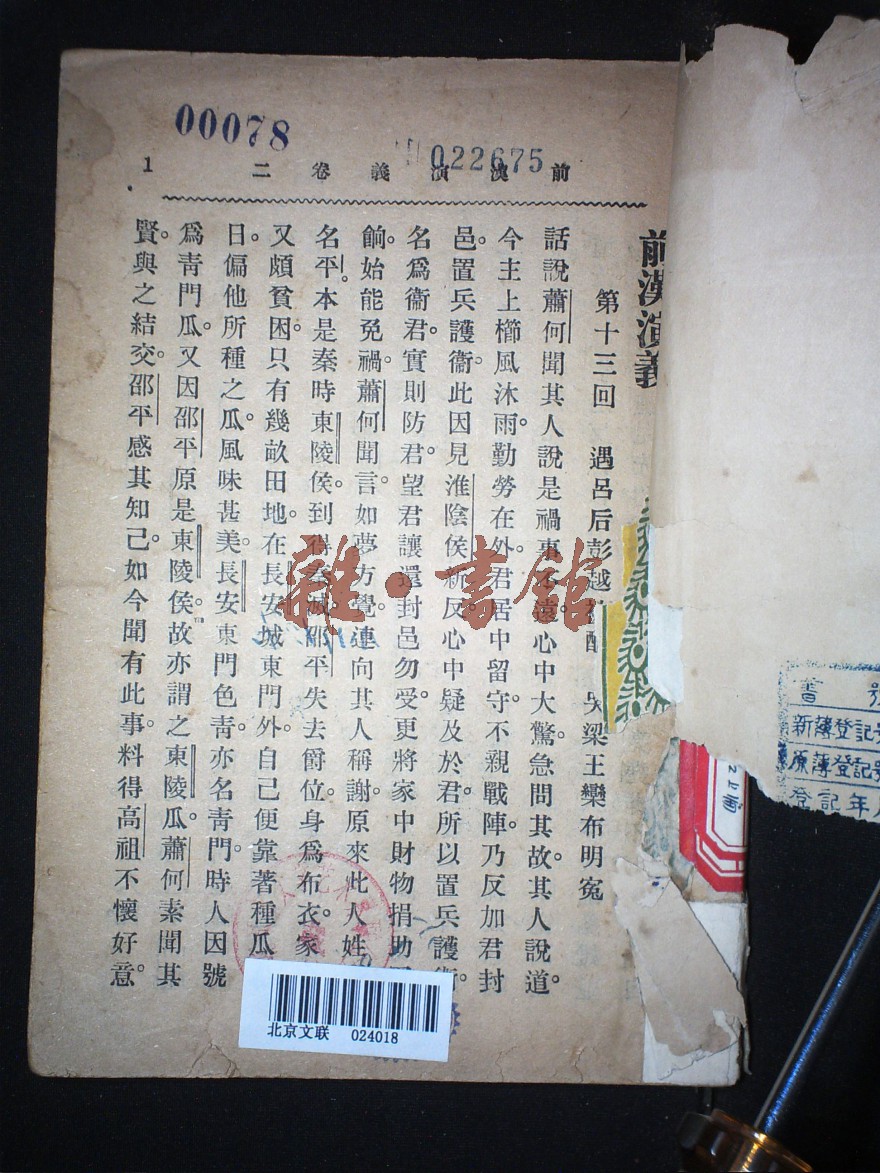 00078
022675
前漢演義卷二 1
前漢演義
第十三回 遇呂后彭越 梁王欒布明冤
話說蕭何聞其人說是禍事不遠。心中大驚。急問其故。其人說道。
今主上櫛風沐雨。勤勞在外。君居中留守。不親戰陣。乃反加君封
邑。置兵護衞。此因見淮陰侯新反。心中疑及於君。所以置兵護衞。
名爲衞君。實則防君。望君讓還封邑勿受。更將家中財物捐助
餉。始能免禍。蕭何聞言。如夢方覺。連向其人稱謝。原來此人姓
名平。本是秦時東陵侯。到得秦滅。邵平失去爵位。身爲布衣。家
又頗貧困。只有幾畝田地。在長安城東門外。自己便靠著種瓜
日。偏他所種之瓜。風味甚美。長安東門色靑。亦名靑門。時人因號
爲靑門瓜。又因邵平原是東陵侯。故亦謂之東陵瓜。蕭何素聞其
賢。與之結交。邵平感其知己。如今聞有此事。料得高祖不懷好意。
雜·書館
北京文联 024018
書 號
新簿登記
原簿登記
登記年